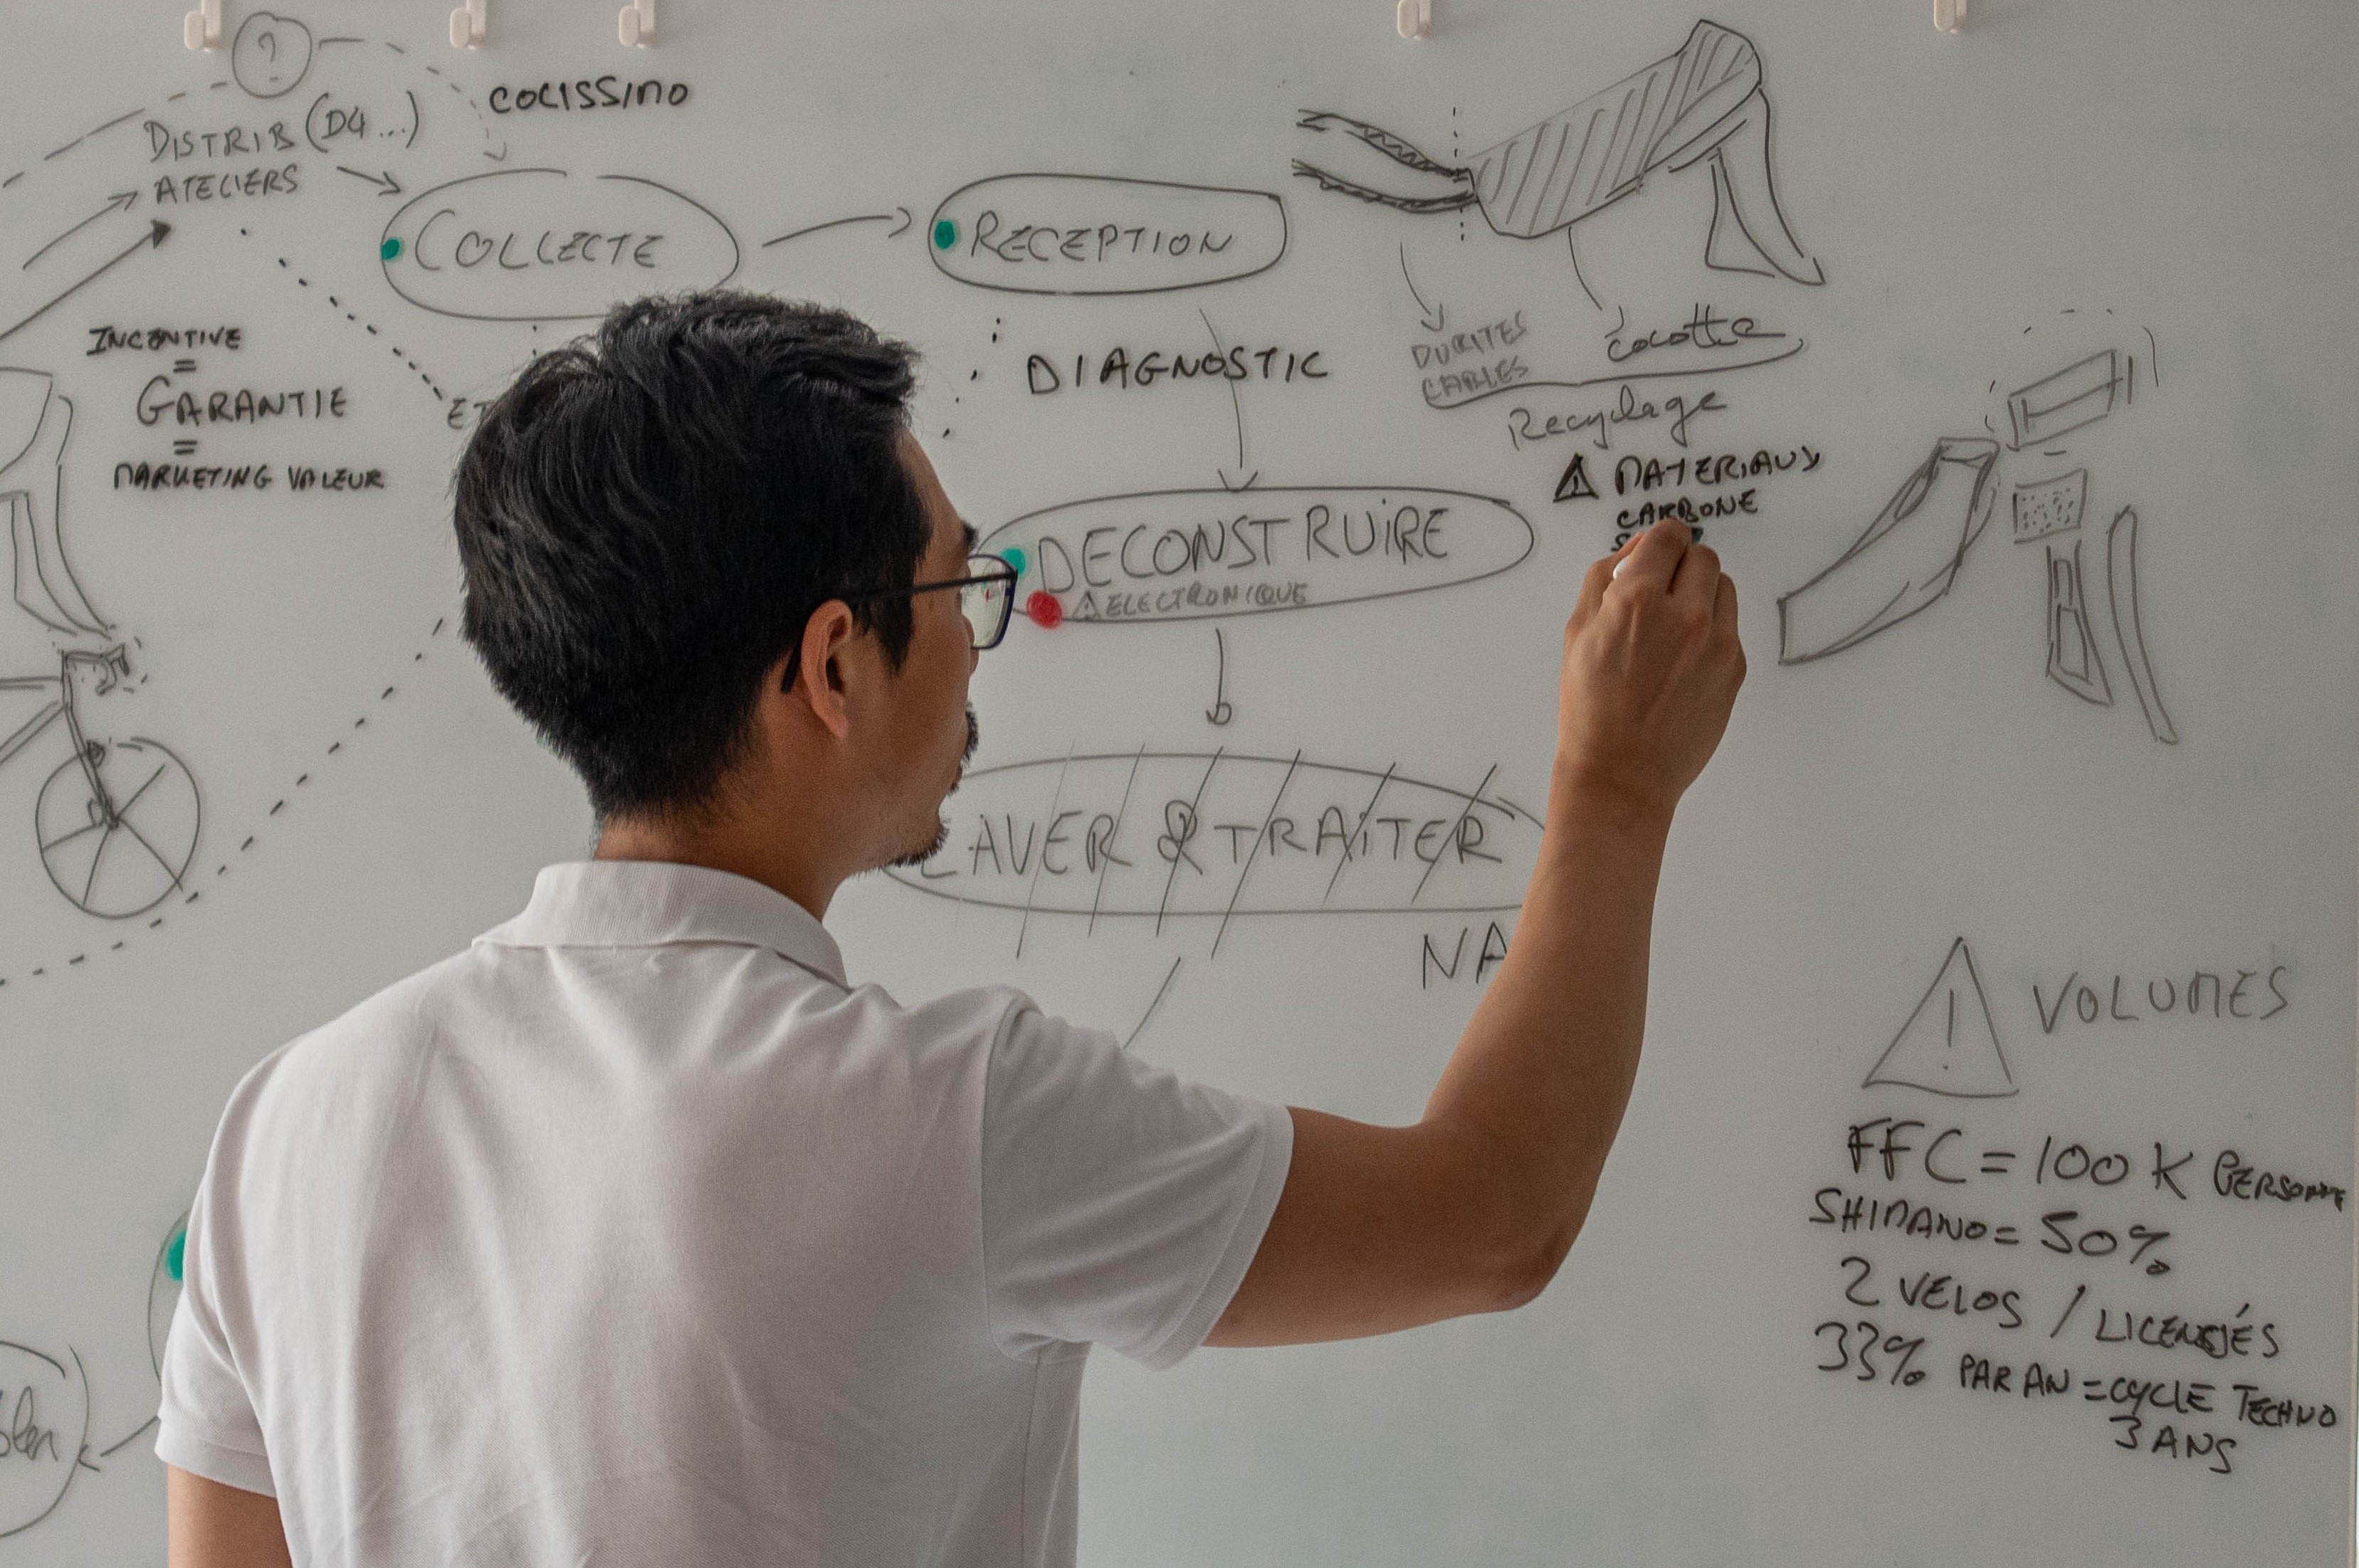 ?
COLISSIMO
DISTRIB (D4...)
ATELIERS
COLLECTE
RECEPTION
INCENTIVE
=
GARANTIE
=
MARKETING VALEUR
DIAGNOSTIC
DURITES
CABLES
cocotte
Recyclage
⚠ MATERIAUX
CARBONE
DECONSTRUIRE
⚠ ELECTRONIQUE
LAVER & TRAITER
NA
⚠ VOLUMES
FFC = 100 K PERSONNE
SHIMANO = 50%
2 VELOS / LICENSIÉS
33% PAR AN = CYCLE TECHNO
3 ANS